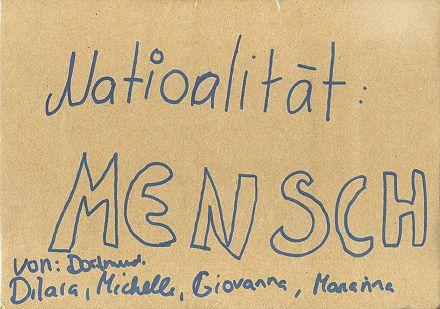 Natioalität:
MENSCH
von: Dortmund.
Dilara, Michelle, Giovanna,